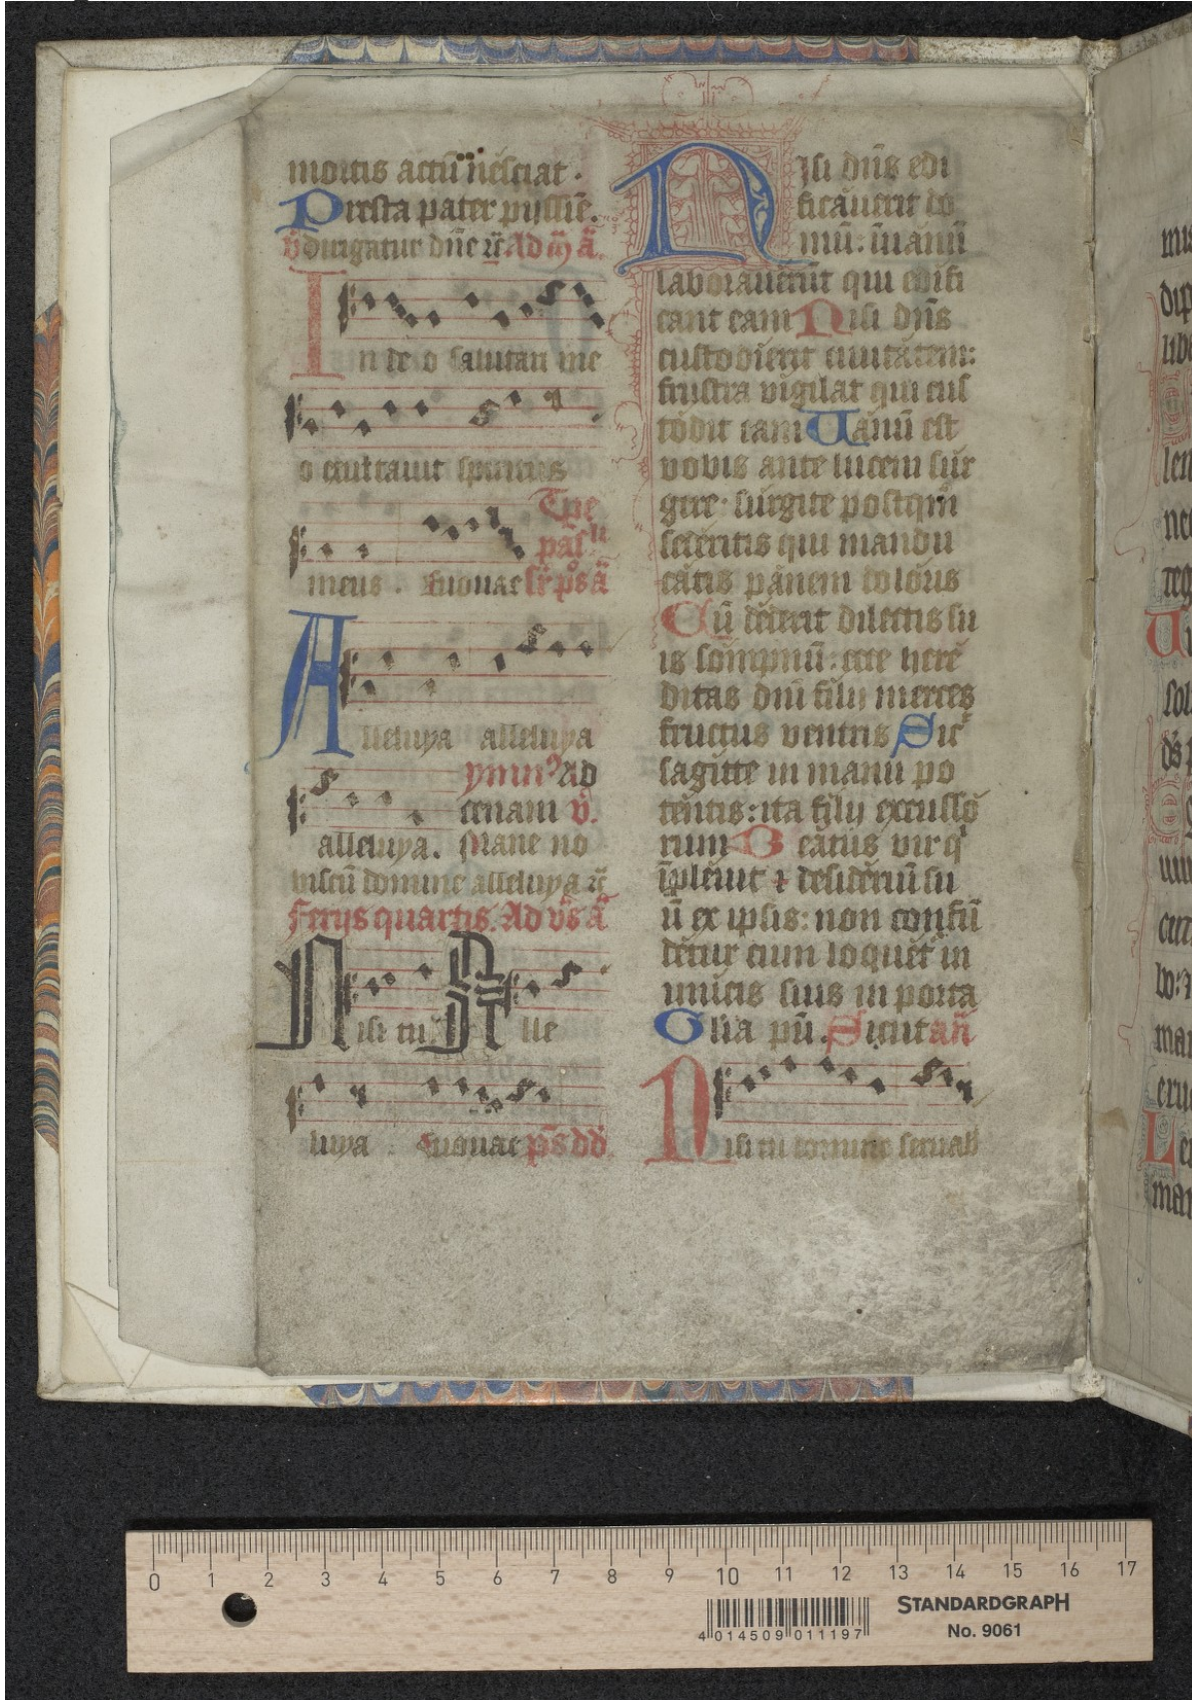 mortis actū nesciat.
Presta pater pijssīe.
v̄ dirigatur dn̄e ꝛc̄ Ad m̄ a͞.
In deo salutari me
o exultauit spiritus
Tꝑe
meus. Euouae ps a͞
Alleluya alleluya
ymn᷒ Ad
cenam v̄.
alleluya. Mane no
biscū domine alleluya ꝛc̄
Ferijs quartis. Ad vs̄ a͞
Nisi tu. Alle
luya Euouae p̄s dd̄
Nisi dn̄s edi
ficauerit do
mū: ī uanū
laborauerūt qui edifi
cant eam Nisi dn̄s
custodierit ciuitatem:
frustra vigilat qui cus
todit eam Uanū est
vobis ante lucem sur
gere: surgite postqm̄
sederitis qui mandu
catis panem doloris
Cū dederit dilectis su
is sompnū: ecce here
ditas dn̄i filij merces
fructus ventris Sic̄
sagitte in manu po
tentis: ita filij excusso
rum Beatus vir q
īpleuit ⁊ desideriū su
ū ex ipsis: non confū
detur cum loquet᷑ in
imicis suis in porta
Glia pr̄i. Sicut an̄
Nisi tu domine seruab
mus
dis
libe
len
nec
reg
sol
mar
eru
Le
mar
0 1 2 3 4 5 6 7 8 9 10 11 12 13 14 15 16 17
STANDARDGRAPH
No. 9061
4 014509 011197